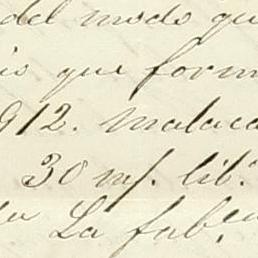 del modo qu
io que form
912. Malaca
30 m/. lib.ª
La fab.ca